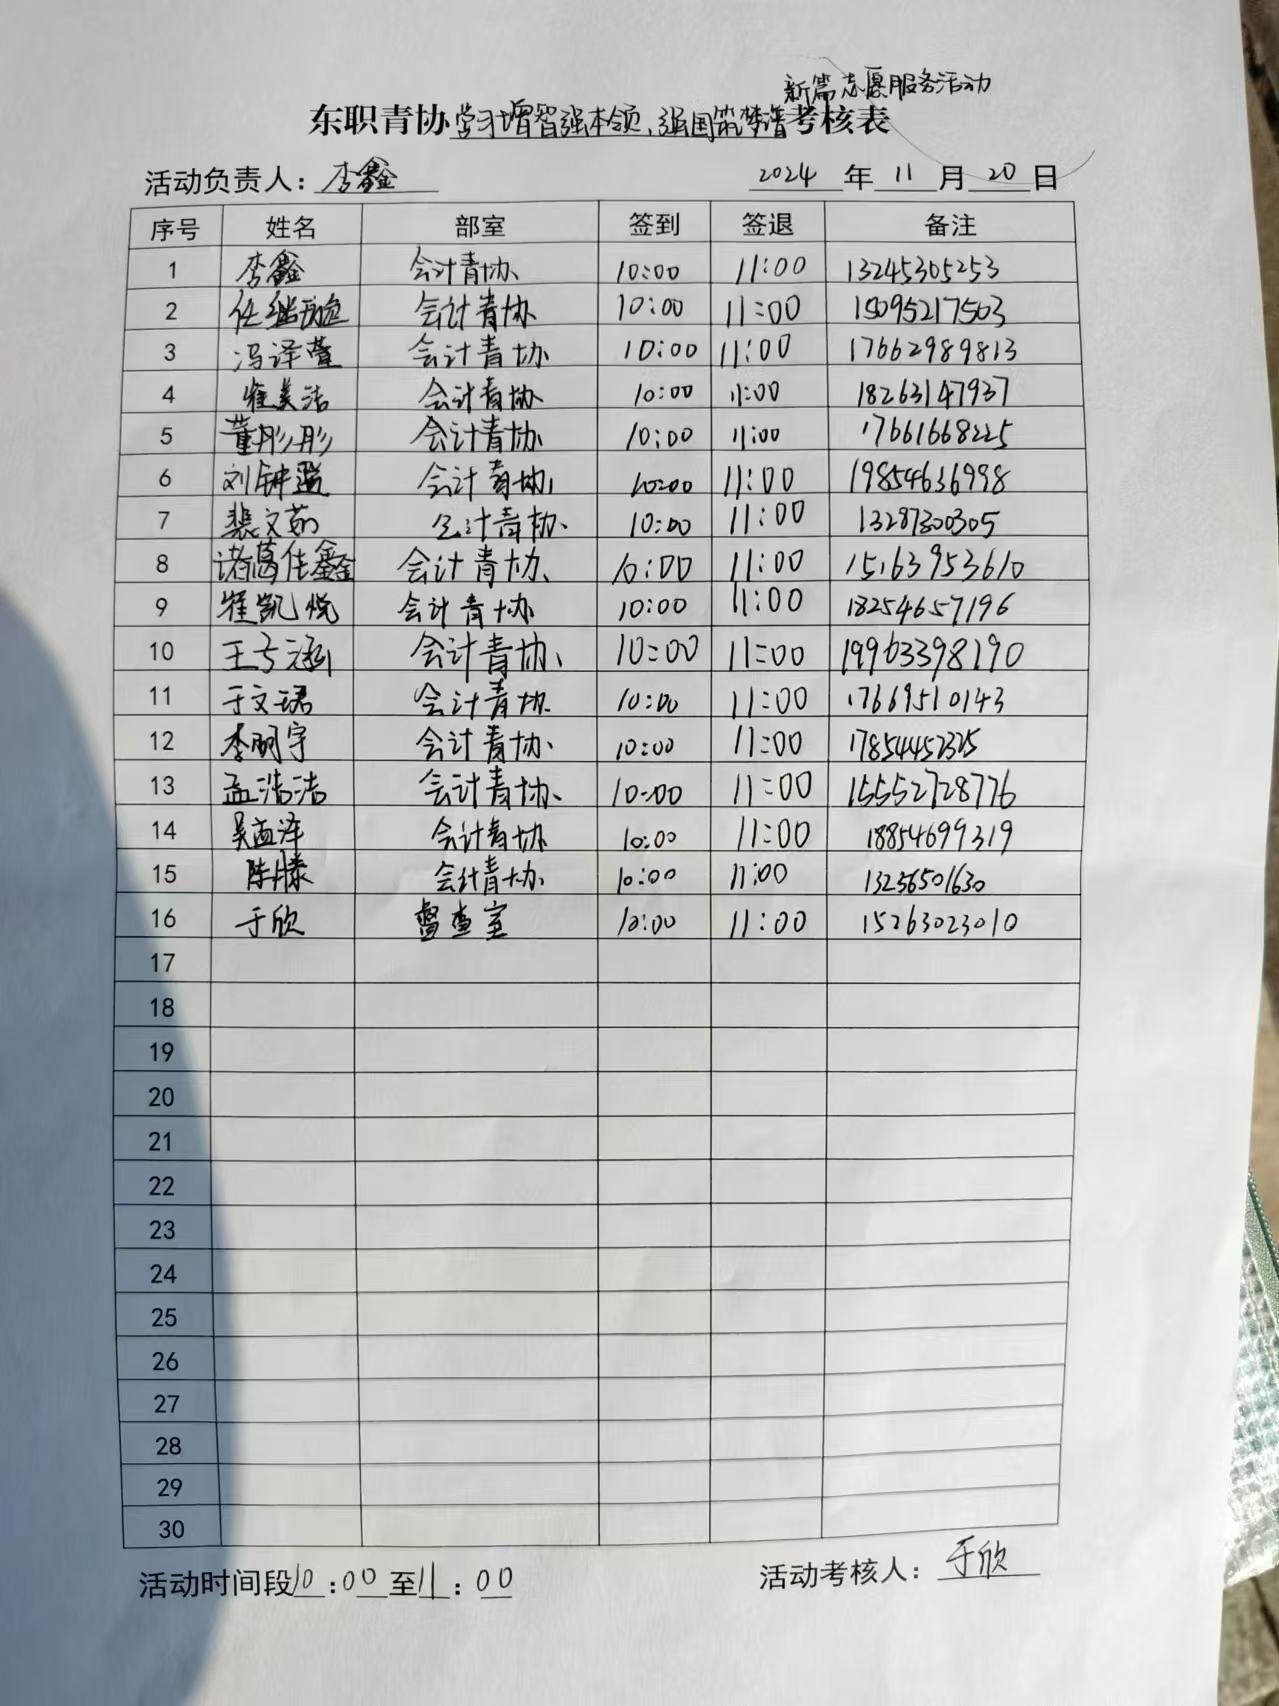 新篇志愿服务活动
东职青协学习增智强本领、强国筑梦谱考核表
活动负责人：李鑫 2024年11月20日
序号 姓名 部室 签到 签退 备注
1 李鑫 会计青协 10:00 11:00 13245305253
2 任继 会计青协 10:00 11:00 15095217563
3 冯译萱 会计青协 10:00 11:00 17662989813
4 崔美洁 会计青协 10:00 11:00 18263147937
5 董彤彤 会计青协 10:00 11:00 17661668225
6 刘钟 会计青协 10:00 11:00 19854636998
7 裴文茹 会计青协 10:00 11:00 13287300305
8 诸葛佳鑫 会计青协 10:00 11:00 15163953610
9 崔凯悦 会计青协 10:00 11:00 18254657196
10 王 涵 会计青协 10:00 11:00 19963398190
11 于文珺 会计青协 10:00 11:00 17669510143
12 李明宇 会计青协 10:00 11:00 17854452325
13 孟浩洁 会计青协 10:00 11:00 15552728776
14 吴孟泽 会计青协 10:00 11:00 18854699319
15 陈滕 会计青协 10:00 11:00 13256501630
16 于欣 督查室 10:00 11:00 15263023010
17
18
19
20
21
22
23
24
25
26
27
28
29
30
活动时间段10:00至11:00 活动考核人：于欣